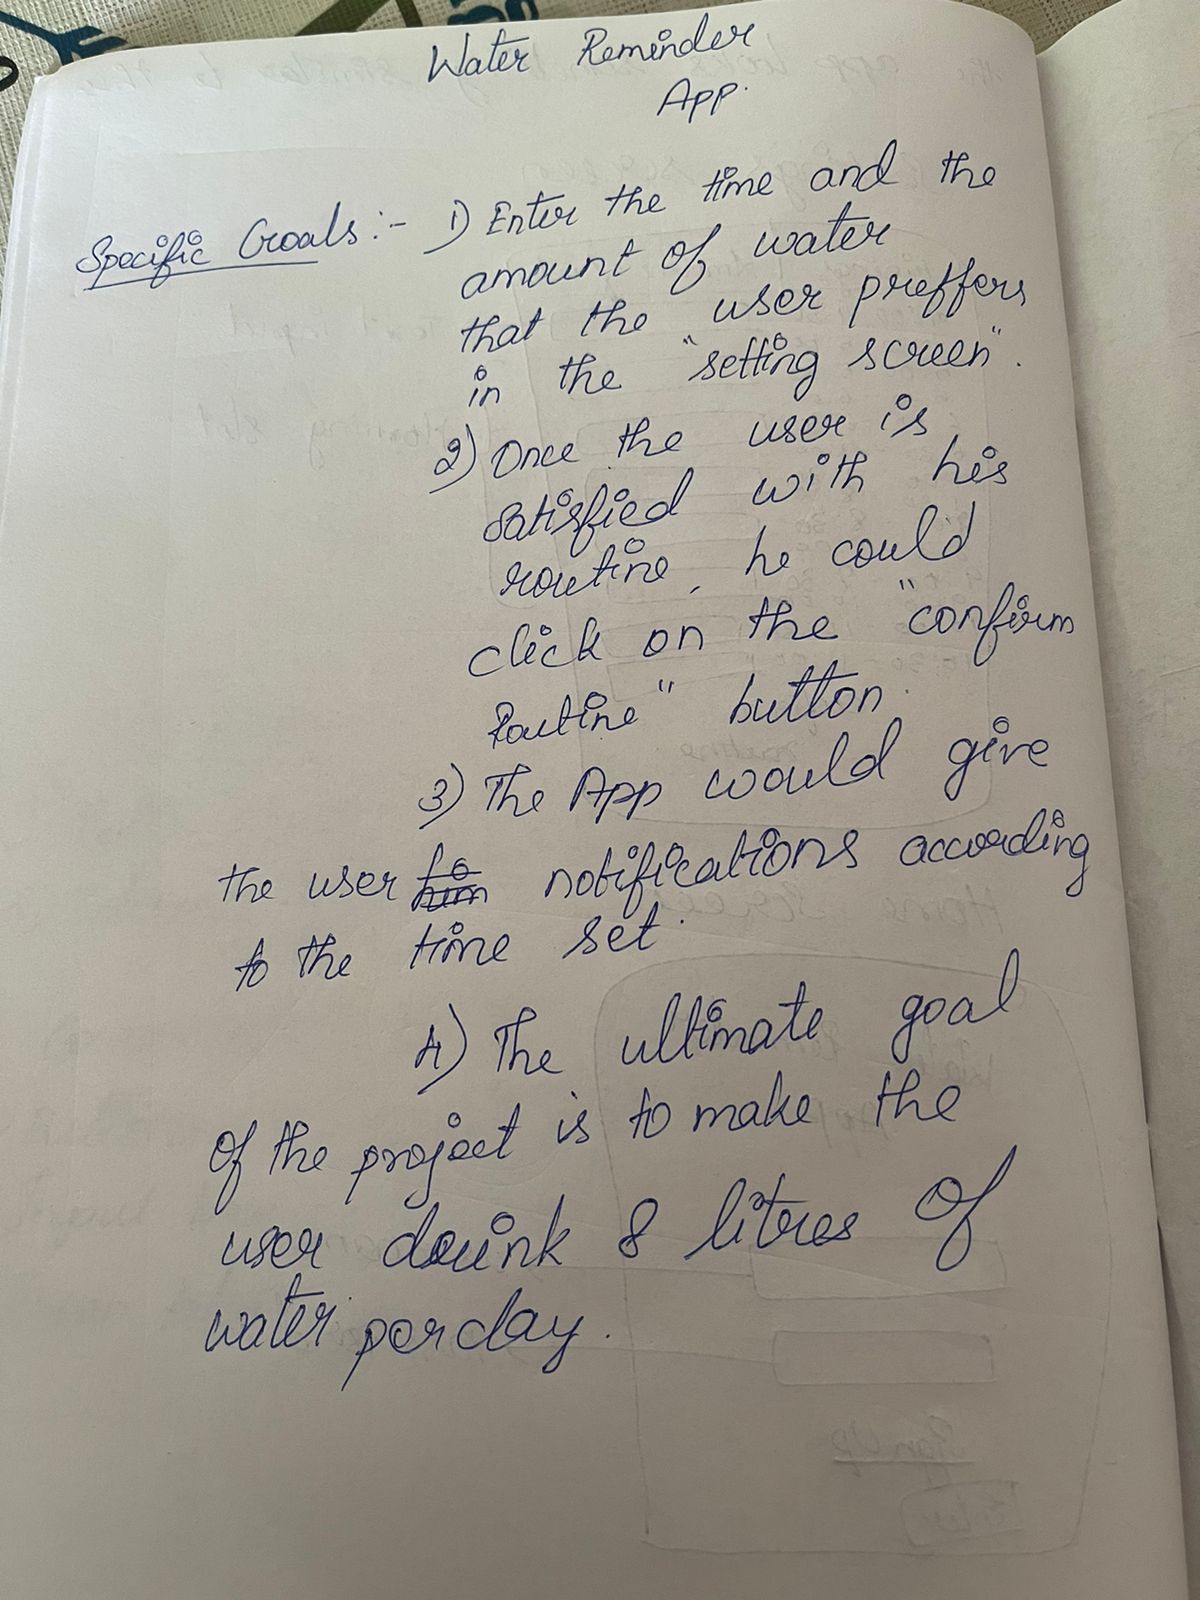 Water Reminder
App.
Specific Goals:- 1) Enter the time and the
amount of water
that the user preffers
in the "setting screen".
2) Once the user is
satisfied with his
routine, he could
click on the "confirm
Routine" button.
3) The App would give
the user notifications according
to the time set.
4) The ultimate goal
of the project is to make the
user drink 8 litres of
water per day.